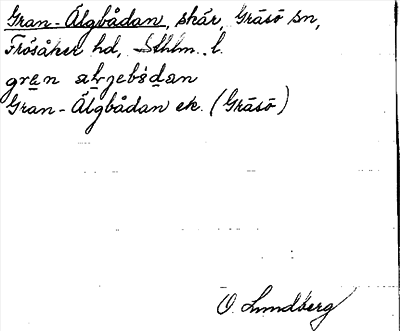 Gran-Älgbådan, skär, Gräsö sn,
Frösåker hd, Sthlm. l.
Gran-Älgbådan ek. (Gräsö)
O. Lundberg